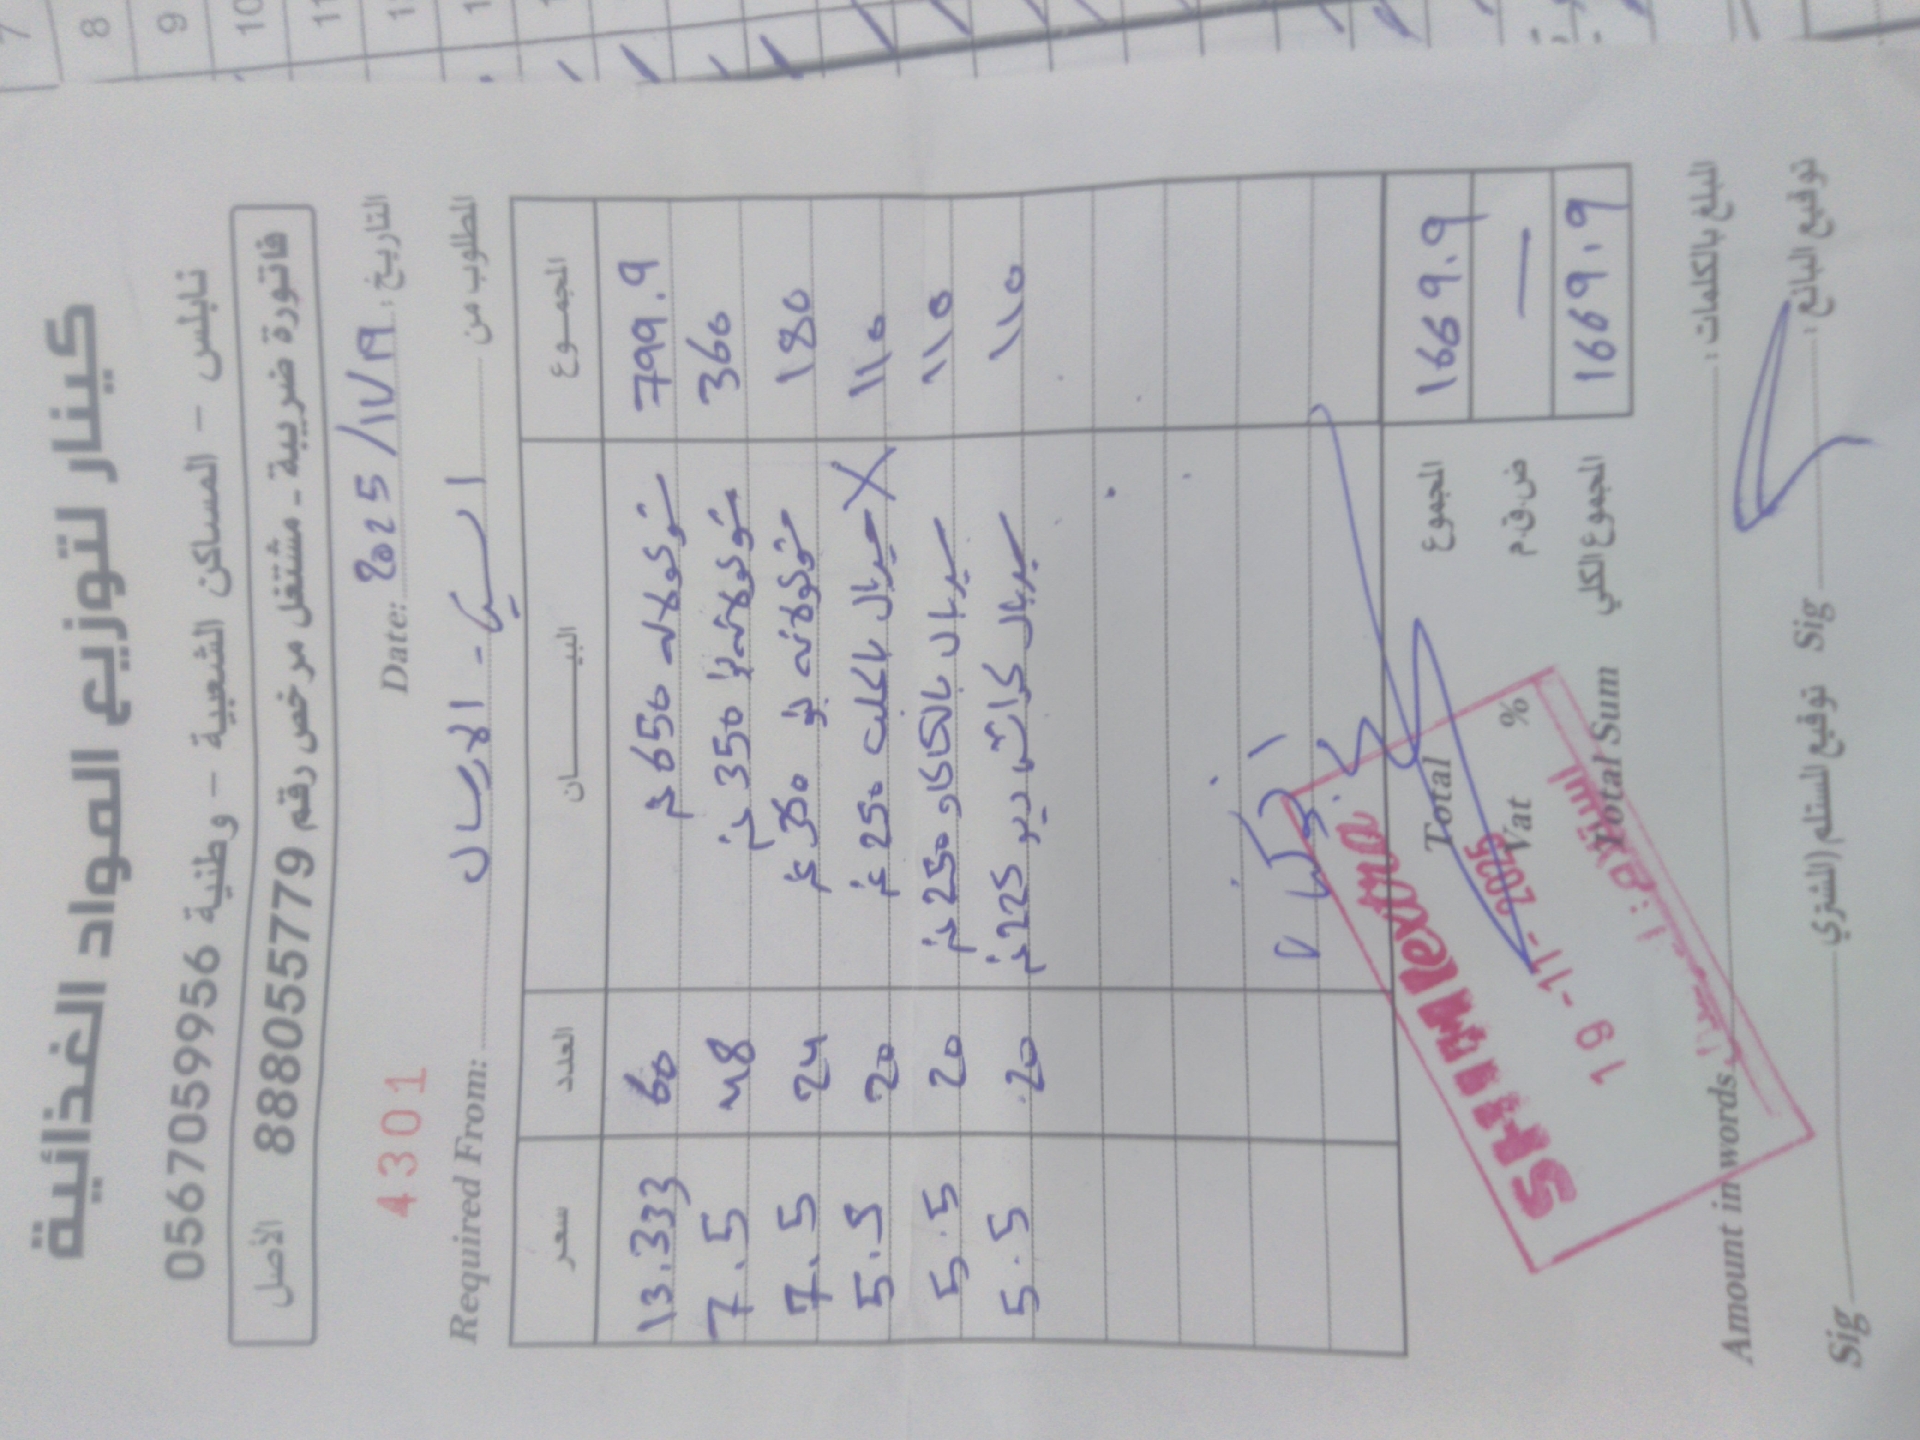 7 8 9 10 11
كينار لتوزيع المواد الغذائية
نابلس - المساكن الشعبية - وطنية 0567059956
فاتورة ضريبية - مشتغل مرخص رقم 888055779 الأصل
التاريخ: 2025/11/19 Date: 4301
المطلوب من الارسال Required From:
المجموع البيـــــان العدد سعر
799.9 شوكولاته 650 غم 60 13.333
360 شوكولاته 350 غم 48 7.5
180 شوكولاته 350 غم 24 7.5
110 سيريال 250 غم 20 5.5
110 سيريال بالكاكاو 250 غم 20 5.5
110 سيريال 225 غم 20 5.5
1669.9 المجموع Total
— ض.ق.م % Vat
1669.9 المجموع الكلي Total Sum
SHINI extra
19-11-2025
المستلم:
المبلغ بالكلمات: Amount in words
توقيع البائع: Sig توقيع المستلم (المشتري) Sig